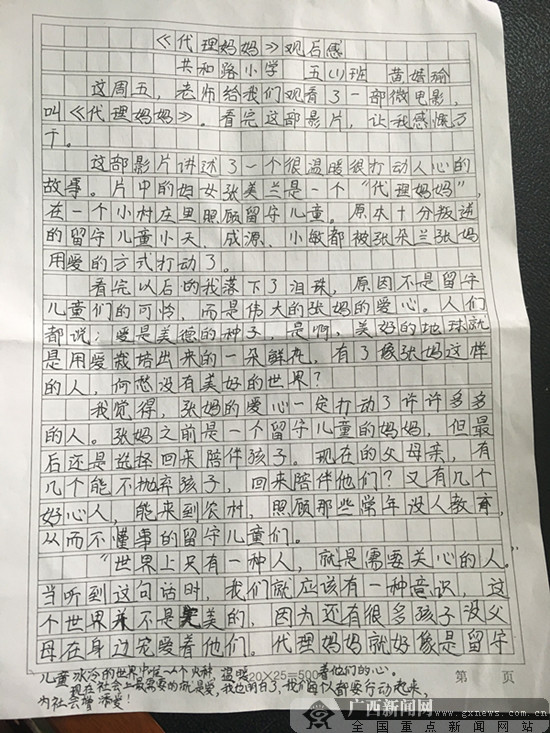 《代理妈妈》观后感
共和路小学 五(1)班 黄婧瑜
这周五，老师给我们观看了一部微电影，
叫《代理妈妈》。看完这部影片，让我感慨万
千。
这部影片讲述了一个很温暖很打动人心的
故事。片中的妇女张美兰是一个“代理妈妈”，
在一个小村庄里照顾留守儿童。原本十分叛逆
的留守儿童小天、成源、小敏都被张朵兰张妈
用爱的方式打动了。
看完以后的我落下了泪珠，原因不是留守
儿童们的可怜，而是伟大的张妈的爱心。人们
都说：爱是美德的种子，是啊，美好的地球就
是用爱栽培出来的一朵鲜花，有了像张妈这样
的人，何愁没有美好的世界？
我觉得，张妈的爱心一定打动了许许多多
的人。张妈之前是一个留守儿童的妈妈，但最
后还是选择回来陪伴孩子。现在的父母亲，有
几个能不抛弃孩子，回来陪伴他们？又有几个
好心人，能来到农村，照顾那些常年没人教育，
从而不懂事的留守儿童们。
“世界上只有一种人，就是需要关心的人。
当听到这句话时，我们就应该有一种意识，这
个世界并不是完美的，因为还有很多孩子没父
母在身边宠爱着他们。代理妈妈就好像是留守
儿童冰冷的世界中一个火种，温暖着他们的心。
20×25=500 第 页
现在社会上最需要的就是爱，我也明白了，我们可以都要行动起来，
为社会增添爱！
广西新闻网 www.gxnews.com.cn
全国重点新闻网站